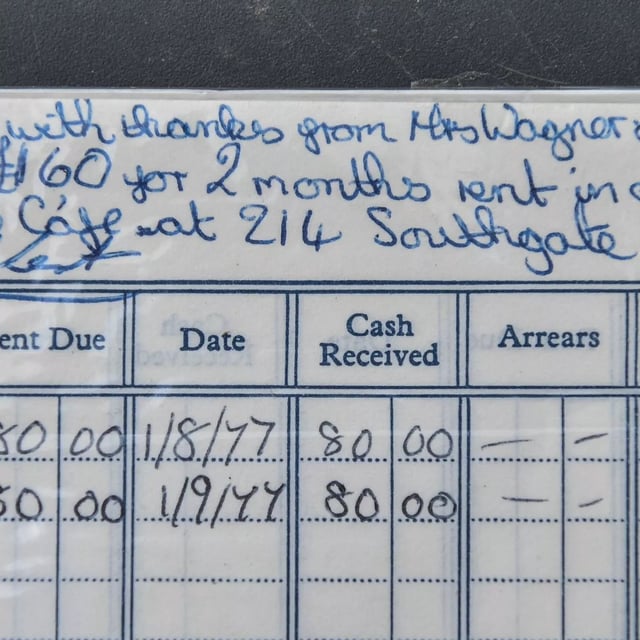 with thanks from Mrs Wagner
£160 for 2 months rent in
Cafe at 214 Southgate
ent Due Date Cash Received Arrears
80 00 1/8/77 80 00 — —
80 00 1/9/77 80 00 — —